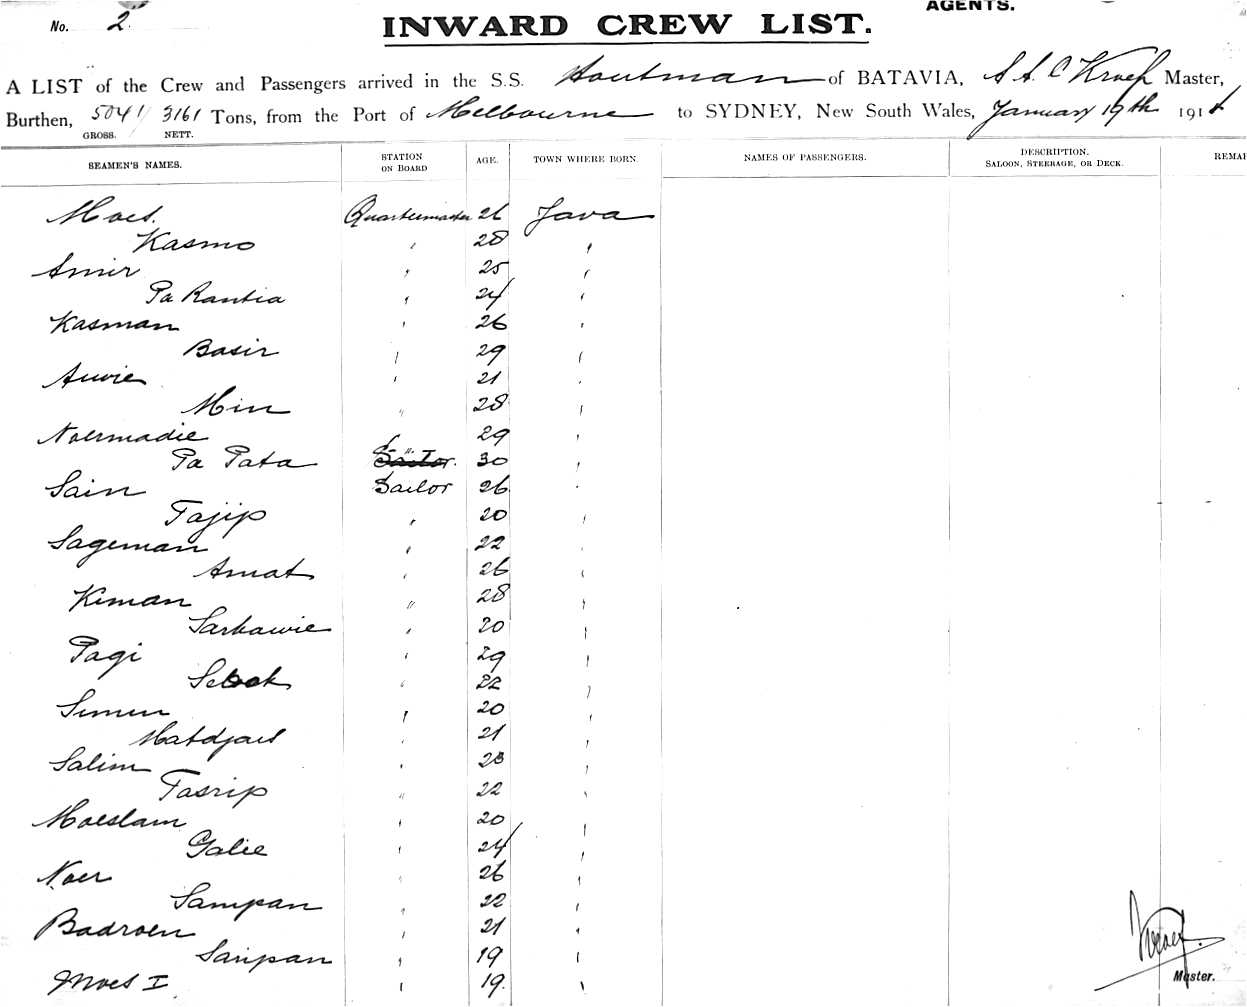 AGENTS.
No. 2
INWARD CREW LIST.
A LIST of the Crew and Passengers arrived in the S.S. Houtman of BATAVIA, Master,
Burthen, 5041 3161 Tons, from the Port of Melbourne to SYDNEY, New South Wales, January 19th 191
GROSS. NETT.
SEAMEN'S NAMES. STATION ON BOARD AGE. TOWN WHERE BORN NAMES OF PASSENGERS. DESCRIPTION. SALOON, STEERAGE, OR DECK. REMAR
Moes. Quartermaster 26 Java
Kasmo " 28 "
Amir " 25 "
Pa Rantia " 24 "
Kasman " 26 "
Basir " 29 "
Auwie " 21 "
Min " 28 "
Noermadie " 29 "
Pa Pata Sailor. 30 "
Sain Sailor 26 "
Tajip " 20 "
Sageman " 22 "
Amat " 26 "
Kiman " 28 "
Sarkawie " 20 "
Pagi " 29 "
22 "
Simin " 20 "
Matdjais " 21 "
Salim " 23 "
Tasrip " 22 "
Moeslam " 20 "
Galie " 24 "
Noer " 26 "
Sampan " 22 "
Badroen " 21 "
Saripan " 19 "
Moes I " 19 "
Master.